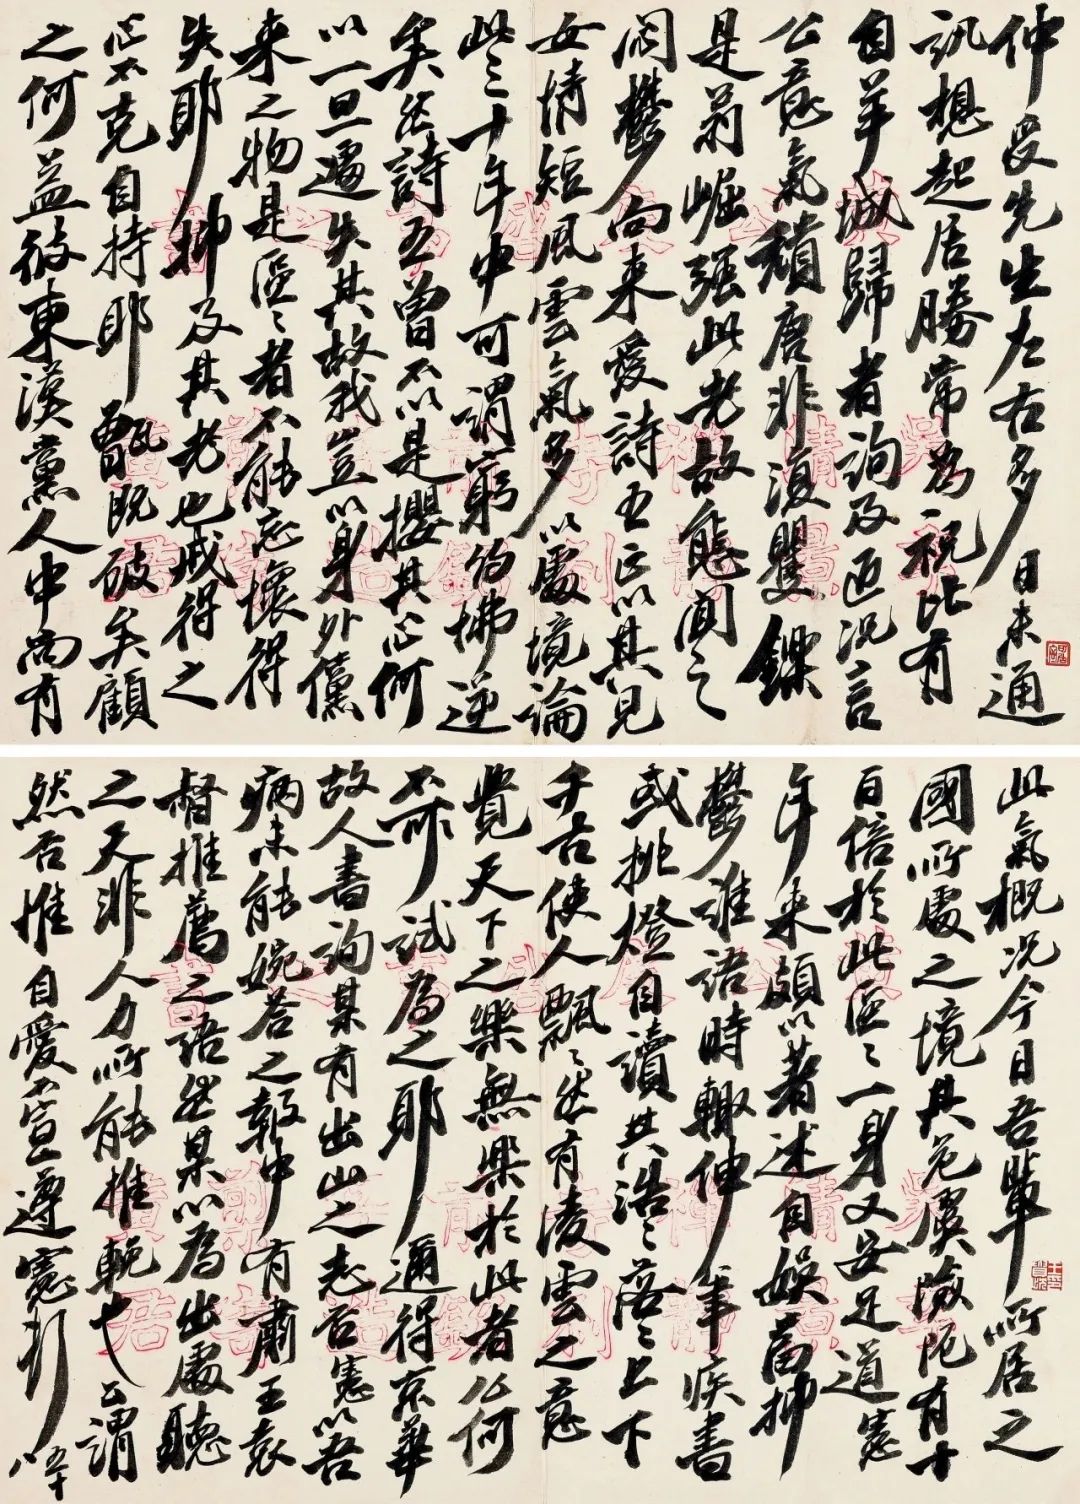 仲受先生左右多日未通
訊想起居勝常為祝比有
自羊城歸者詢及近況言
公意氣積唐非復矍鑠
是翁崛强此老故態聞之
悶鬱向來愛詩五正以其兒
女情短風雲氣多以處境論
此三十年中可謂窮約拂逆
矣然詩五曾不以是攖其心何
以一旦遽失其故我豈以身外儻
來之物是區々者不能忘懷得
失耶抑及其老也戒得之
心不克自持耶甑既破矣顧
之何益彼東漢黨人中尚有
此氣概况今日吾輩所居之
國所處之境其危虞險阨有十
百倍於此區々一身又安足道憲
年來頗以著述自娛當抑
鬱誰語時輒伸筆疾書
或挑燈自讀其浩々落々上下
千古使人飄々然有凌雲之意
覺天下之樂無樂於此者公何
不亦試為之耶邇得京華
故人書詢某有出山之志否憲以吾
病未能婉答之報中有肅王袁
督推薦之語然某以為出處聽
之天非人力所能推輓也公謂
然否惟自愛不宣遵憲頓